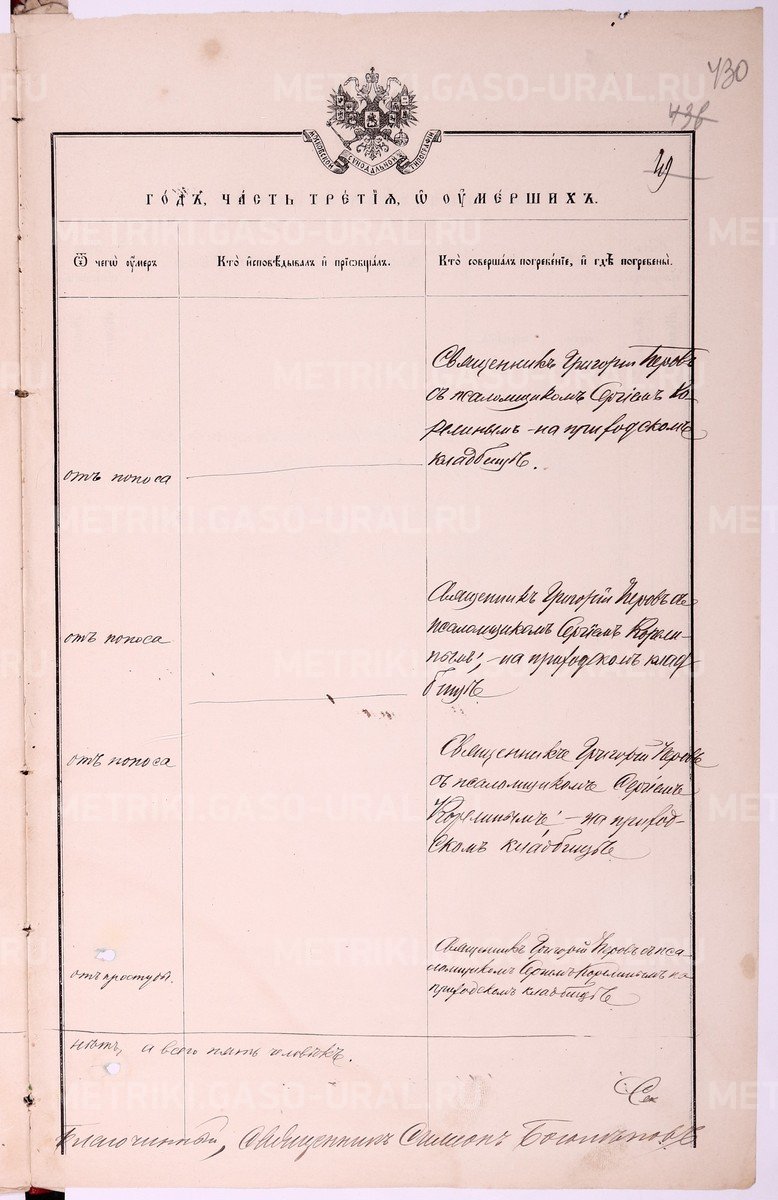 430
436
49
МОСКОВСКОЙ СѴНОДАЛЬНОЙ ТИПОГРАФІИ
ГО́ДЪ, ЧА́СТЬ ТРЕ́ТІѦ, Ѡ҆ ОУ҆МЕ́РШИХЪ.
Ѿ чегѡ̀ оу҆́меръ
Кто̀ и҆сповѣ́дывалъ и҆ прїѡбща́лъ.
Кто̀ соверша́лъ погребе́нїе, и҆ гдѣ̀ погребены̀.
Священникъ Григорій Перовъ
съ псаломщикомъ Сергіемъ Ко-
релинымъ - на приходскомъ
кладбищѣ.
отъ поноса
Священникъ Григорій Перовъ съ
псаломщикомъ Сергіемъ Корели-
нымъ, - на приходскомъ клад-
бищѣ
отъ поноса
Священникъ Григорій Перовъ
съ псаломщикомъ Сергіемъ
Корелинымъ, - на приход-
скомъ кладбищѣ
отъ поноса
Священникъ Григорій Перовъ съ пса-
ломщикомъ Сергіемъ Корелинымъ на
приходскомъ кладбищѣ
отъ простуды.
нѣтъ, а всего пять человѣкъ.
Благочинный, Священникъ Симеонъ
METRIKI.GASO-URAL.RU